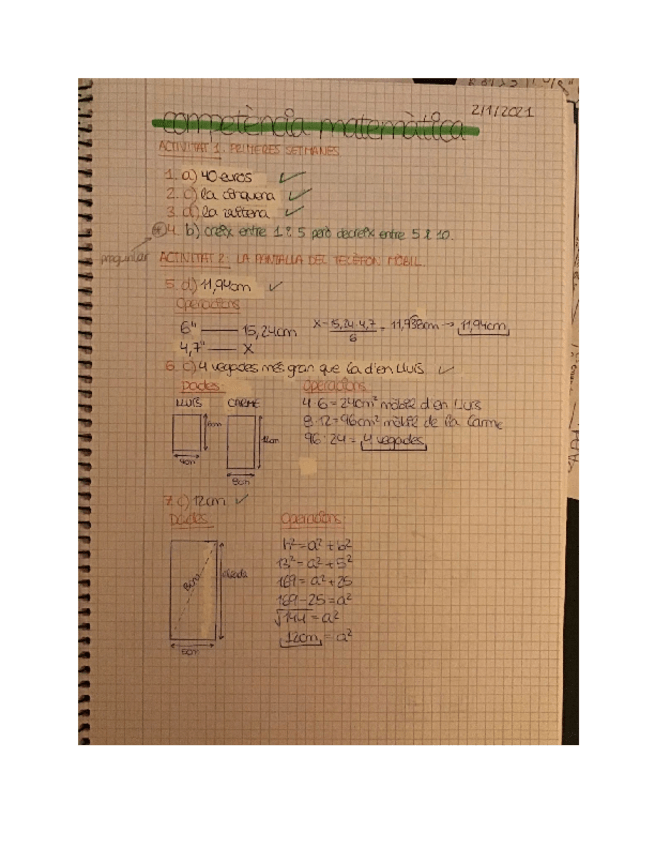 2/1/2021
competència matemàtica
ACTIVITAT 1. PRIMERES SETMANES
1. a) 40 euros ✓
2. c) la cinquena ✓
3. d) la setena ✓
4. b) creix entre 1 i 5 però decreix entre 5 i 10.
preguntar
ACTIVITAT 2: LA PANTALLA DEL TELÈFON MÒBIL.
5. d) 11,94cm ✓
Operacions
6" —— 15,24cm
4,7" —— X
X = 15,24·4,7 / 6 = 11,938cm → 11,94cm
6. c) 4 vegades més gran que la d'en Lluís ✓
Dades:
LLUÍS CARME
6cm
4cm
12cm
8cm
Operacions
4·6=24cm² mòbil d'en Lluís
8·12=96cm² mòbil de la Carme
96:24= 4 vegades
7. c) 12cm ✓
Dades:
alçada
5cm
Operacions
h²=a²+b²
13²=a²+5²
169=a²+25
169-25=a²
√144=a²
12cm=a²